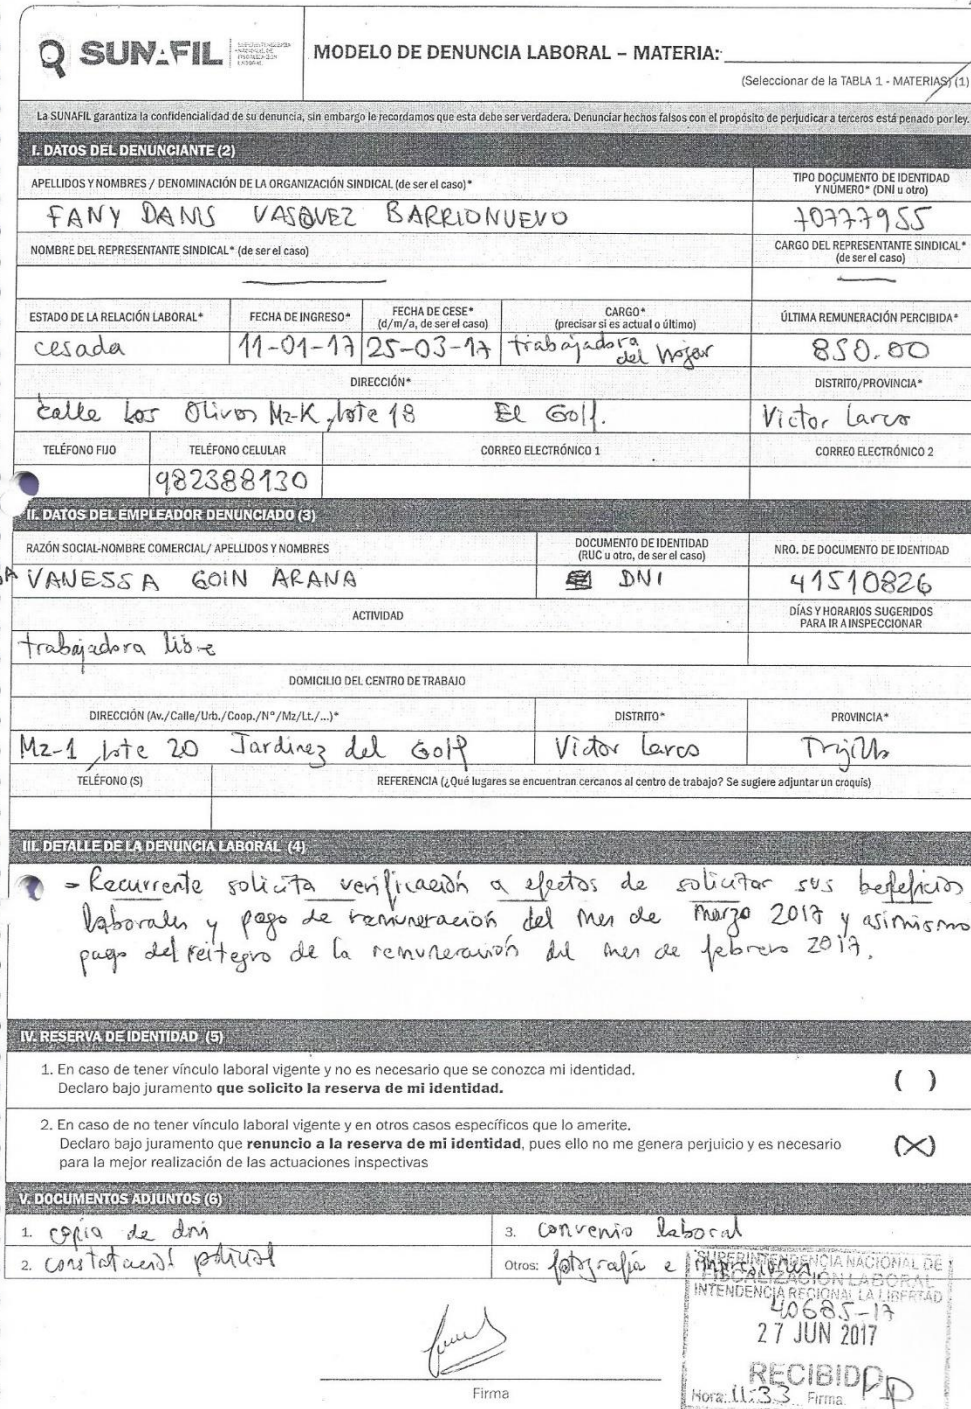 SUNAFIL
SUPERINTENDENCIA NACIONAL DE FISCALIZACIÓN LABORAL
MODELO DE DENUNCIA LABORAL – MATERIA:
(Seleccionar de la TABLA 1 - MATERIAS) (1)
La SUNAFIL garantiza la confidencialidad de su denuncia, sin embargo le recordamos que esta debe ser verdadera. Denunciar hechos falsos con el propósito de perjudicar a terceros está penado por ley.
I. DATOS DEL DENUNCIANTE (2)
APELLIDOS Y NOMBRES / DENOMINACIÓN DE LA ORGANIZACIÓN SINDICAL (de ser el caso)* TIPO DOCUMENTO DE IDENTIDAD Y NÚMERO* (DNI u otro)
FANY DANIS VASQUEZ BARRIONUEVO 70777955
NOMBRE DEL REPRESENTANTE SINDICAL* (de ser el caso) CARGO DEL REPRESENTANTE SINDICAL* (de ser el caso)
ESTADO DE LA RELACIÓN LABORAL* FECHA DE INGRESO* FECHA DE CESE* (d/m/a, de ser el caso) CARGO* (precisar si es actual o último) ÚLTIMA REMUNERACIÓN PERCIBIDA*
cesada 11-01-17 25-03-17 trabajadora del hogar 850.00
DIRECCIÓN* DISTRITO/PROVINCIA*
calle Los Olivos Mz-K, lote 18 El Golf. Victor Larco
TELÉFONO FIJO TELÉFONO CELULAR CORREO ELECTRÓNICO 1 CORREO ELECTRÓNICO 2
982388130
II. DATOS DEL EMPLEADOR DENUNCIADO (3)
RAZÓN SOCIAL-NOMBRE COMERCIAL/ APELLIDOS Y NOMBRES DOCUMENTO DE IDENTIDAD (RUC u otro, de ser el caso) NRO. DE DOCUMENTO DE IDENTIDAD
VANESSA GOIN ARANA DNI 41510826
ACTIVIDAD DÍAS Y HORARIOS SUGERIDOS PARA IR A INSPECCIONAR
trabajadora libre
DOMICILIO DEL CENTRO DE TRABAJO
DIRECCIÓN (Av./Calle/Urb./Coop./N°/Mz/Lt./...)* DISTRITO* PROVINCIA*
Mz-1, lote 20 Jardinez del Golf Victor Larco Trujillo
TELÉFONO (S) REFERENCIA (¿Qué lugares se encuentran cercanos al centro de trabajo? Se sugiere adjuntar un croquis)
III. DETALLE DE LA DENUNCIA LABORAL (4)
- Recurrente solicita verificación a efectos de solicitar sus beneficios
laborales y pago de remuneración del mes de marzo 2017 y asimismo
pago del reitegro de la remuneración del mes de febrero 2017.
IV. RESERVA DE IDENTIDAD (5)
1. En caso de tener vínculo laboral vigente y no es necesario que se conozca mi identidad.
Declaro bajo juramento que solicito la reserva de mi identidad. ( )
2. En caso de no tener vínculo laboral vigente y en otros casos específicos que lo amerite.
Declaro bajo juramento que renuncio a la reserva de mi identidad, pues ello no me genera perjuicio y es necesario (X)
para la mejor realización de las actuaciones inspectivas
V. DOCUMENTOS ADJUNTOS (6)
1. copia de dni 3. convenio laboral
2. constatación policial Otros: fotografía e impresiones
SUPERINTENDENCIA NACIONAL DE
FISCALIZACIÓN LABORAL
INTENDENCIA REGIONAL LA LIBERTAD
40685-17
27 JUN 2017
RECIBIDO
Hora: 11:33 Firma
Firma